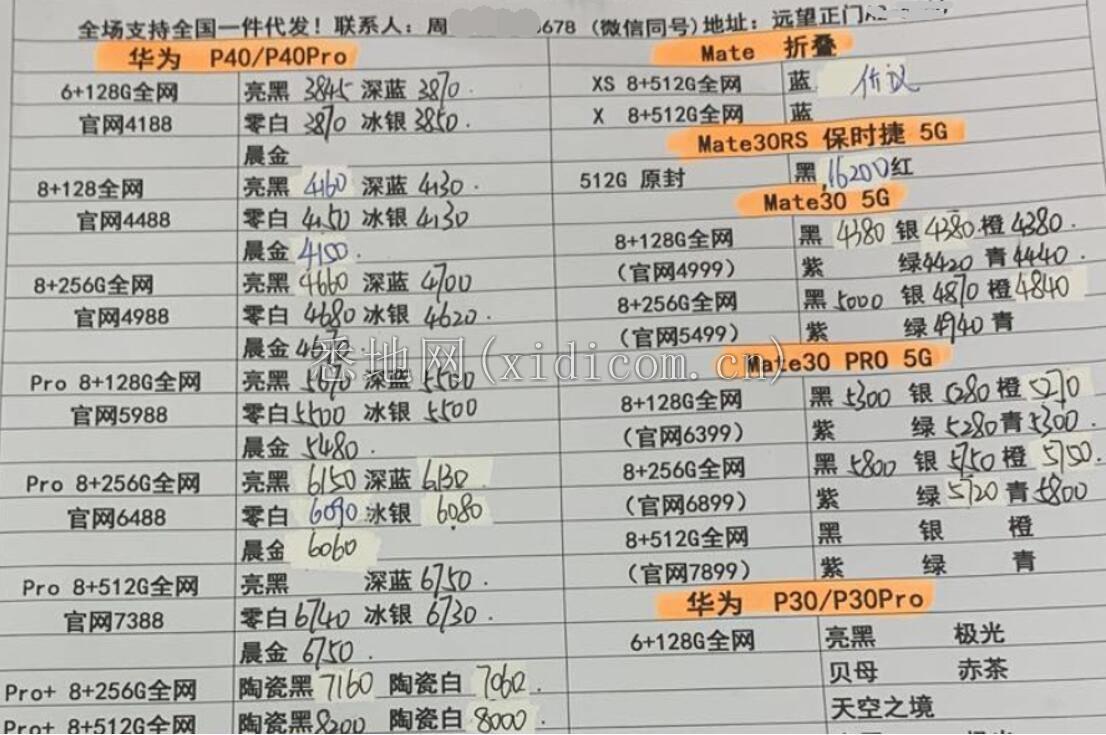 全场支持全国一件代发！联系人：周 678 (微信同号)地址：远望正门
华为 P40/P40Pro
6+128G全网 亮黑 3845 深蓝 3870.
官网4188 零白 3870 冰银 3850.
晨金
8+128全网 亮黑 4160 深蓝 4130.
官网4488 零白 4150 冰银 4130
晨金 4150.
8+256G全网 亮黑 4660 深蓝 4700
官网4988 零白 4680 冰银 4620.
晨金
悉地网(xidicom.cn)
Pro 8+128G全网 亮黑 深蓝 5500
官网5988 零白 5500 冰银 5500
晨金 5480.
Pro 8+256G全网 亮黑 6150 深蓝 6130
官网6488 零白 6090 冰银 6080
晨金 6060
Pro 8+512G全网 亮黑 深蓝 6750.
官网7388 零白 6740 冰银 6730.
晨金 6750.
Pro+ 8+256G全网 陶瓷黑 7160 陶瓷白 7060.
Pro+ 8+512G全网 陶瓷黑 8200 陶瓷白 8000.
Mate 折叠
XS 8+512G全网 蓝 价议
X 8+512G全网 蓝
Mate30RS 保时捷 5G
512G 原封 黑 16200 红
Mate30 5G
8+128G全网 黑 4380 银 4380 橙 4380.
(官网4999) 紫 绿 4420 青 4440.
8+256G全网 黑 5000 银 4870 橙 4840
(官网5499) 紫 绿 4940 青
Mate30 PRO 5G
8+128G全网 黑 5300 银 5280 橙 5270
(官网6399) 紫 绿 5280 青 5300.
8+256G全网 黑 5800 银 5750 橙 5750.
(官网6899) 紫 绿 5720 青 5800
8+512G全网 黑 银 橙
(官网7899) 紫 绿 青
华为 P30/P30Pro
6+128G全网 亮黑 极光
贝母 赤茶
天空之境